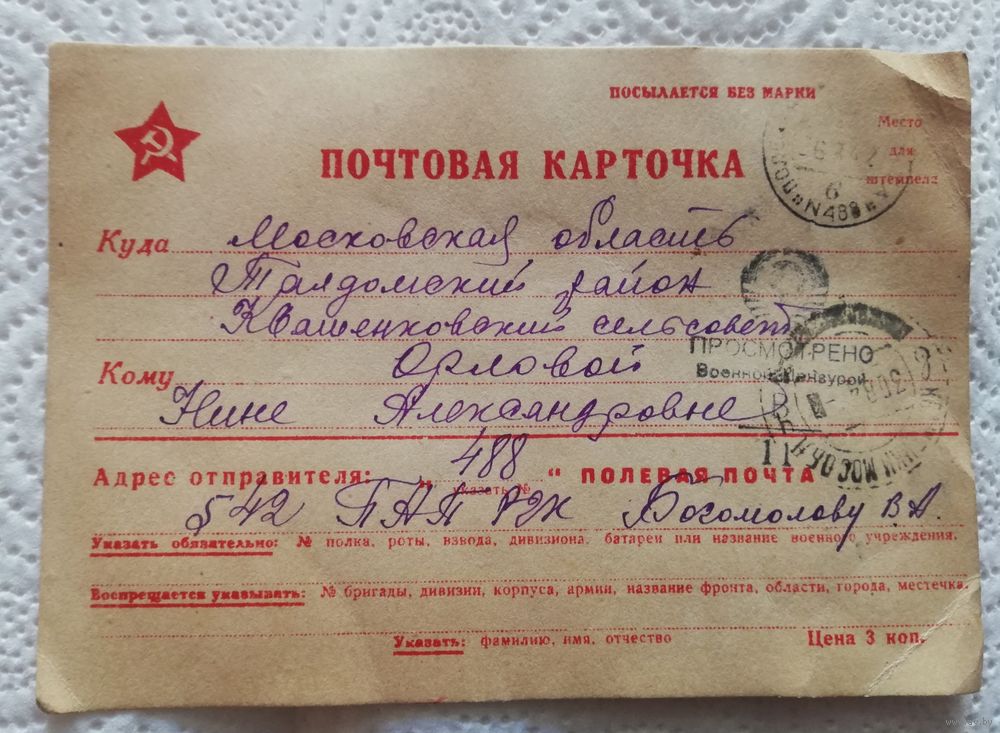 ПОСЫЛАЕТСЯ БЕЗ МАРКИ
Место
для
штемпеля
ПОЧТОВАЯ КАРТОЧКА
N488
6
Куда Московская область
Талдомский район
Квашенковский сельсовет
ПРОСМОТРЕНО
Военной Цензурой
Кому Орловой
Нине Александровне
11
МОСКВА
Адрес отправителя: „ 488 “ ПОЛЕВАЯ ПОЧТА
указать №
542 ПАП Богомолову В. А.
Указать обязательно: № полка, роты, взвода, дивизиона, батареи или название военного учреждения.
Воспрещается указывать: № бригады, дивизии, корпуса, армии, название фронта, области, города, местечка.
Указать: фамилию, имя, отчество
Цена 3 коп.